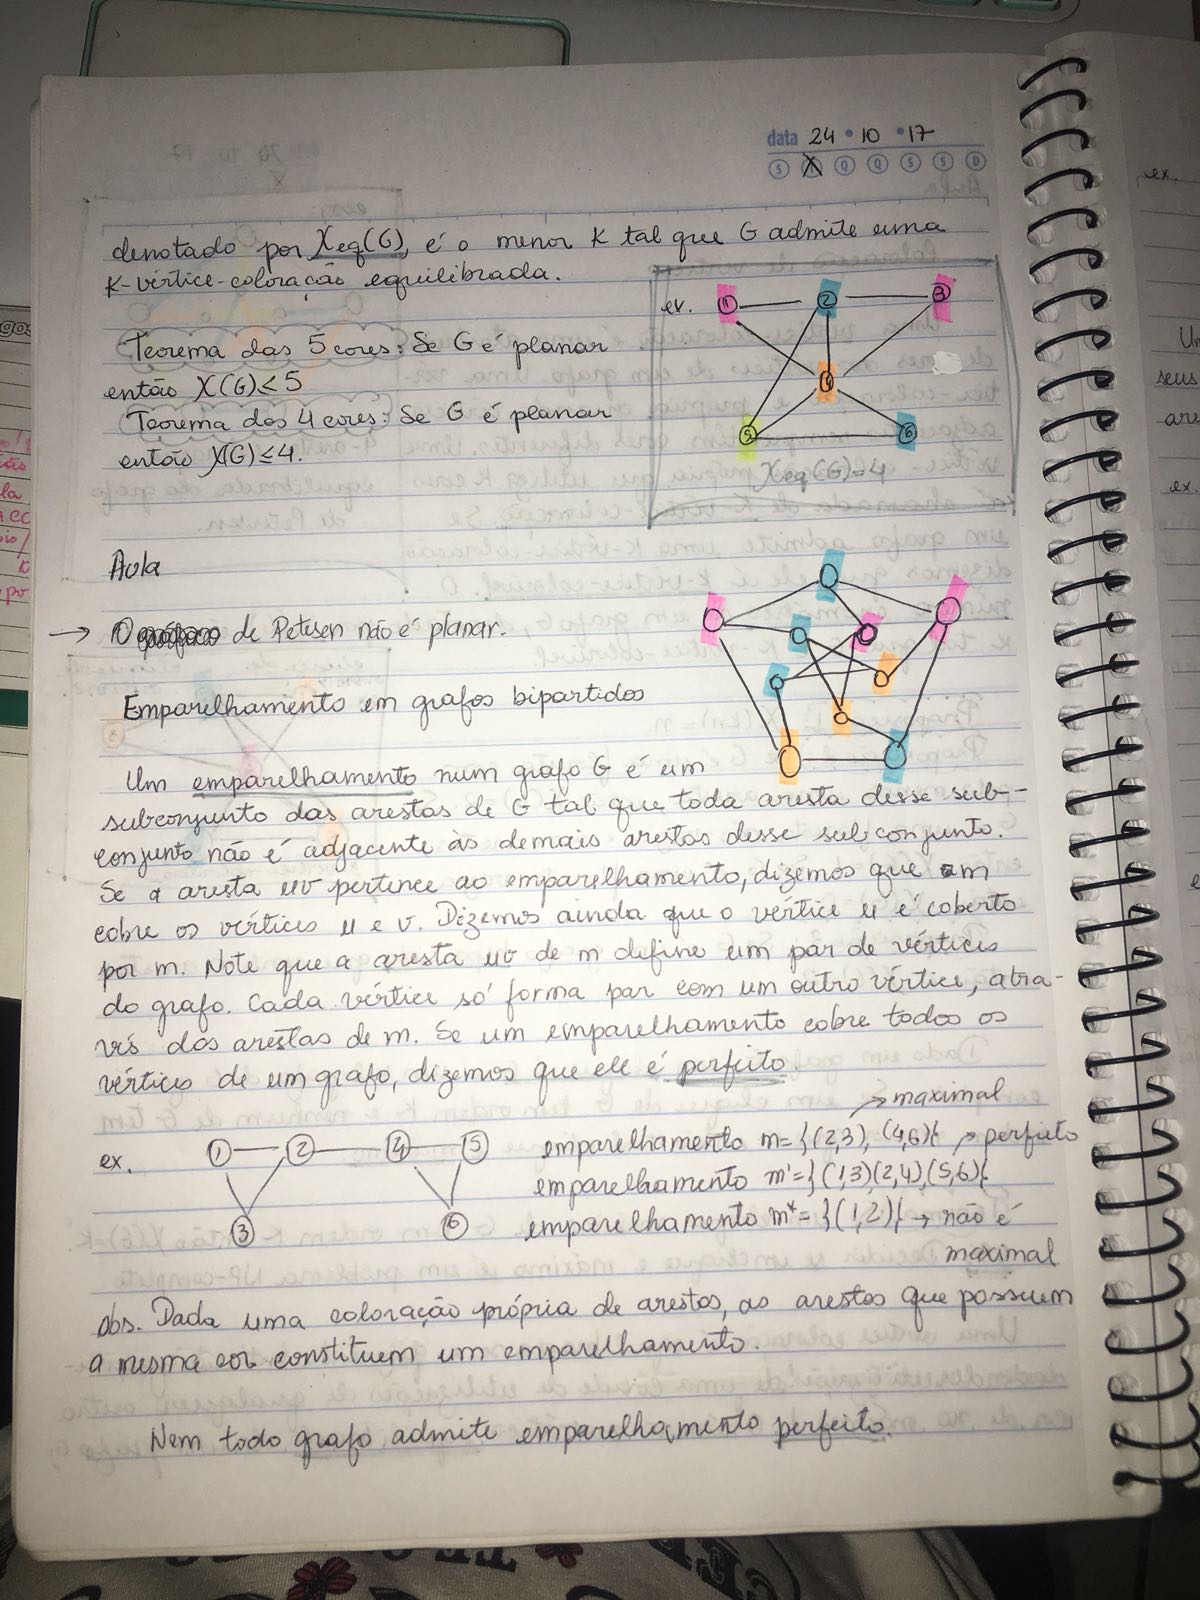 data 24 • 10 • 17
S T Q Q S S D
denotado por Xeq(G), é o menor K tal que G admite uma
K-vértice-coloração equilibrada.
Teorema das 5 cores: Se G é planar
então X(G)≤5
Teorema dos 4 cores: Se G é planar
então X(G)≤4.
ex.
1 2 3
4
5 6
Xeq(G)=4
Aula
→ O de Petersen não é planar.
Emparelhamento em grafos bipartidos
Um emparelhamento num grafo G é um
subconjunto das arestas de G tal que toda aresta desse sub-
conjunto não é adjacente às demais arestas desse subconjunto.
Se a aresta uv pertence ao emparelhamento, dizemos que m
cobre os vértices u e v. Dizemos ainda que o vértice u é coberto
por m. Note que a aresta uv de m define um par de vértices
do grafo. Cada vértice só forma par com um outro vértice, atra-
vés dos arestas de m. Se um emparelhamento cobre todos os
vértices de um grafo, dizemos que ele é perfeito.
→ maximal
ex. 1 2 4 5 emparelhamento m={(2,3), (4,6)} → perfeito
emparelhamento m'={(1,3)(2,4),(5,6)}
3 6 emparelhamento m*={(1,2)} → não é
maximal
obs. Dada uma coloração própria de arestos, as arestos que possuem
a mesma cor constituem um emparelhamento.
Nem todo grafo admite emparelhamento perfeito.